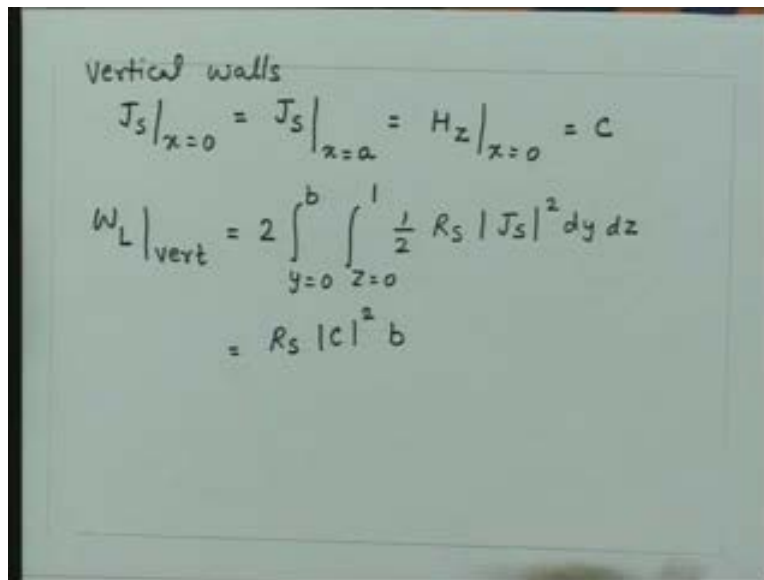 Vertical walls
J_S|_{x=0} = J_S|_{x=a} = H_Z|_{x=0} = C
W_L|_{vert} = 2 ∫_{y=0}^{b} ∫_{z=0}^{1} 1/2 R_S |J_S|^2 dy dz
= R_S |C|^2 b